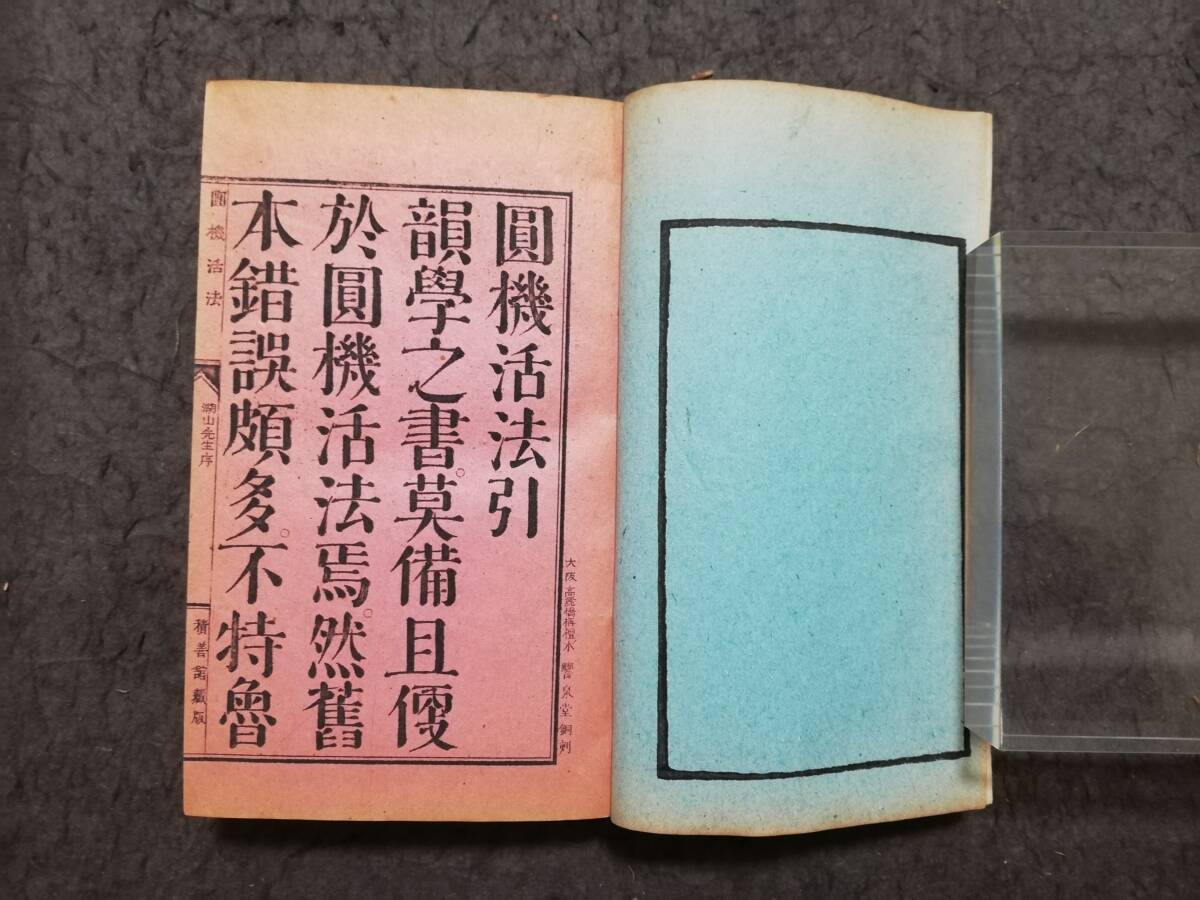 圓機活法引
韻學之書。莫備且便
於圓機活法焉。然舊
本錯誤頗多。不特魯
大阪高麗橋栴檀木 響泉堂銅刻
圓機活法
湖山先生序
積善館藏版